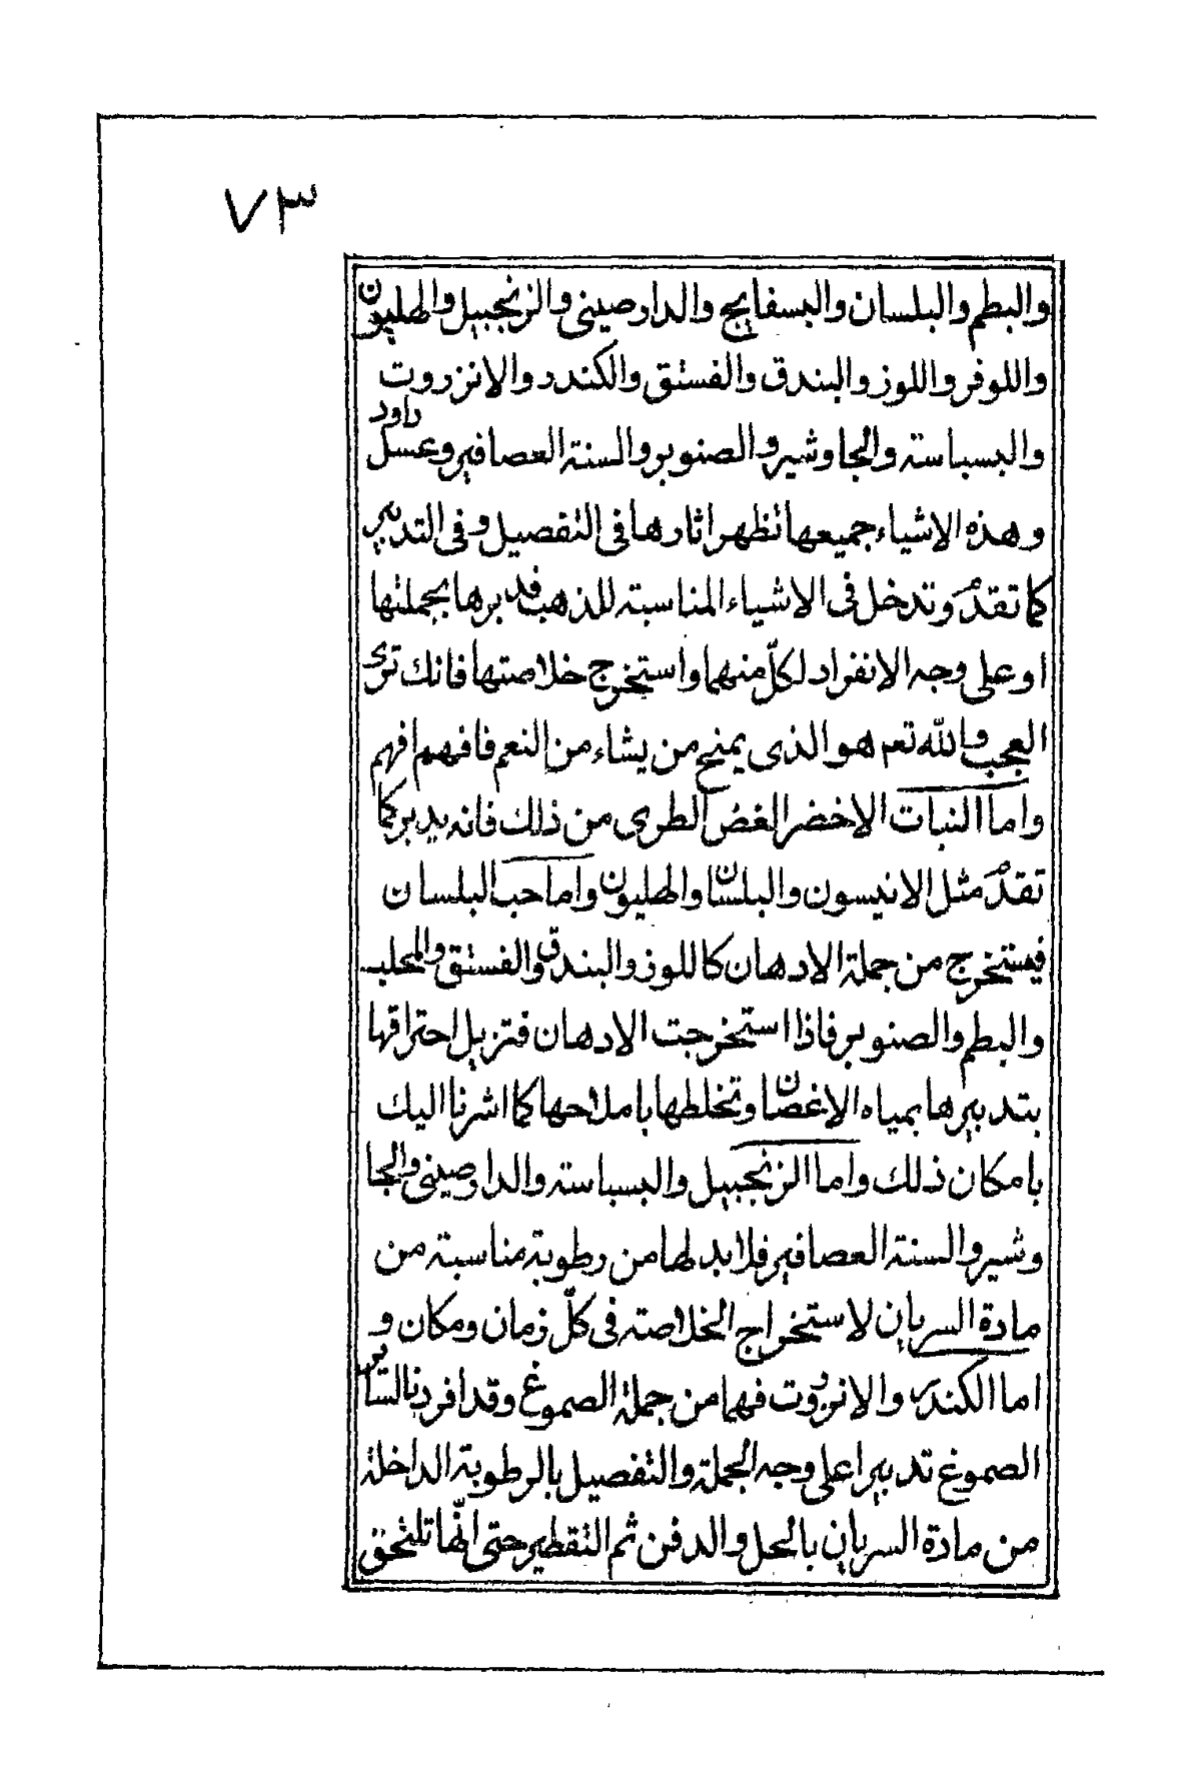 ٧٣
والبطم والبلسان والبسفايج والدارصينى والزنجبيل والهليون
واللوفر واللوز والبندق والفستق والكندر والانزروت
والبسباسة والجاوشير والصنوبر والسنة العصافير وعسل داود
وهذه الاشياء جميعها تظهر اثارها فى التفصيل وفى التدبير
كما تقدم وتدخل فى الاشياء المناسبة للذهب فدبرها بجملتها
او على وجه الانفراد لكلّ منهما واستخرج خلاصتها فانك ترى
العجب والله تعم هو الذى يمنح من يشاء من النعم فافهم افهم
واما النبات الاخضر الغض الطرى من ذلك فانه يدبر كما
تقدم مثل الانيسون والبلسان والهليون واما حب البلسان
فيستخرج من جملة الادهان كاللوز والبندق والفستق والمحلب
والبطم والصنوبر فاذا استخرجت الادهان فتزيل احتراقها
بتدبيرها بمياه الاغصان وتخلطها باملاحها كما اشرنا اليك
بامكان ذلك واما الزنجبيل والبسباسة والدارصينى والجا
وشير والسنة العصافير فلا بد لها من رطوبة مناسبة من
مادة السريان لاستخراج الخلاصة فى كلّ زمان ومكان و
اما الكندر والانزروت فهما من جملة الصموغ وقد افردنا لسائر
الصموغ تدبيرا على وجه الجملة والتفصيل بالرطوبة الداخلة
من مادة السريان بالحل والدفن ثم التقطير حتى انّها تلتحق